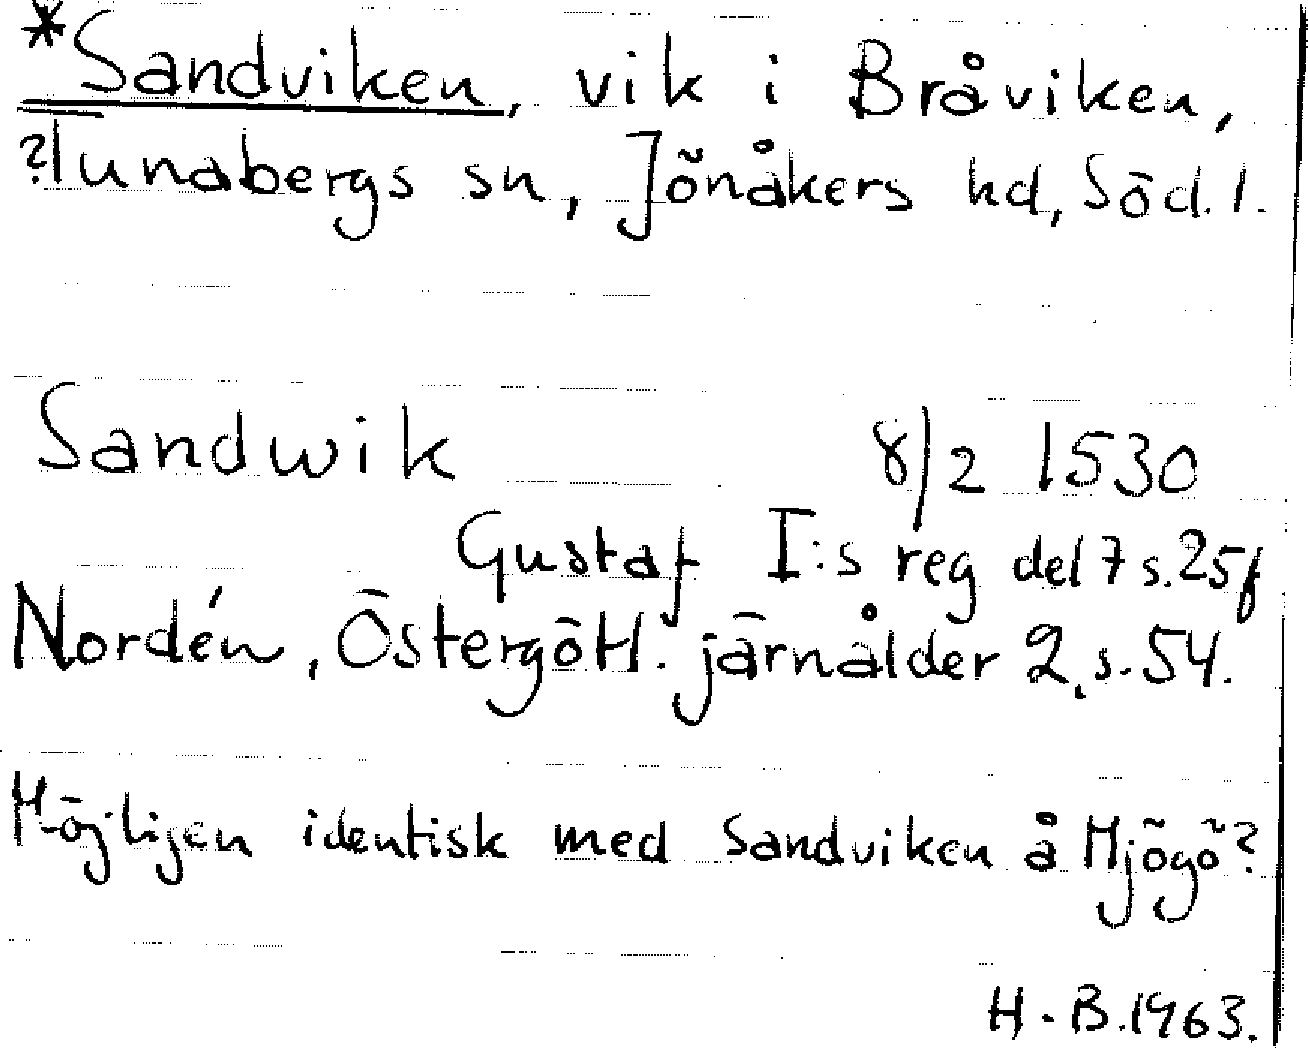 *Sandviken, vik i Bråviken,
?Tunabergs sn, Jönåkers hd, Söd. l.
Sandwik 8/2 1530
Gustaf I:s reg del 7 s. 25f
Nordén, Östergötl. järnålder 2, s. 54.
Möjligen identisk med Sandviken å Mjögö?
H-B. 1963.